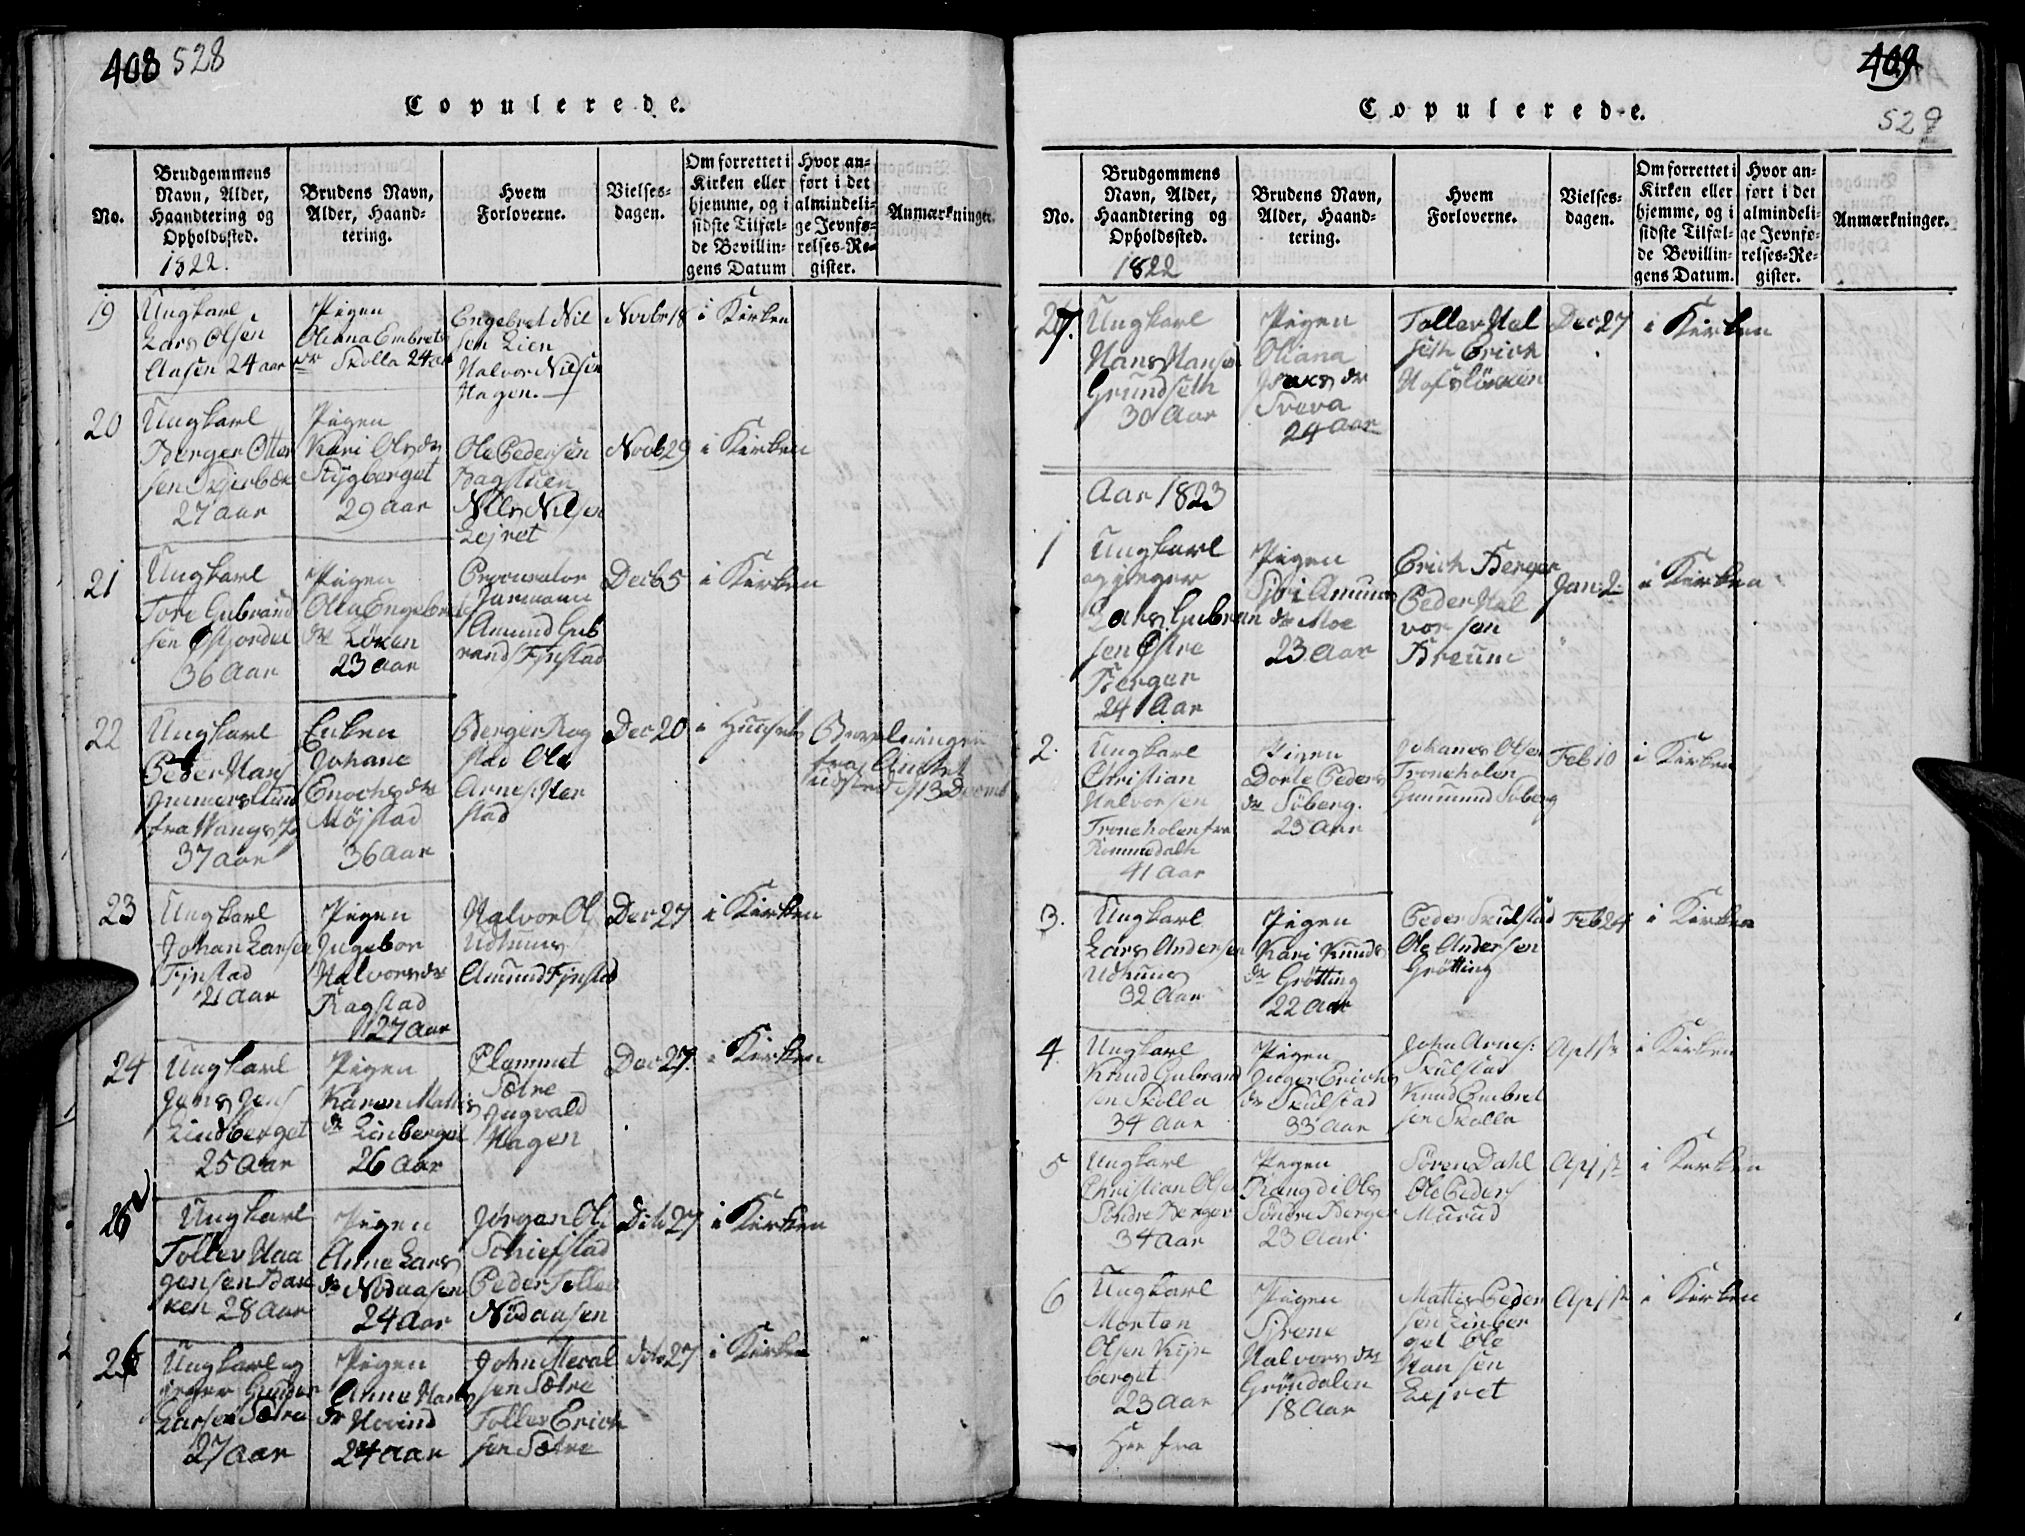 408 528
Copulerede.
No.
Brudgommens
Navn, Alder,
Haandtering og
Opholdssted.
1822.
Brudens Navn,
Alder, Haand-
tering.
Hvem
Forloverne.
Vielses-
dagen.
Om forrettet i
Kirken eller
hjemme, og i
sidste Tilfæl-
de Bevillin-
gens Datum
Hvor an-
ført i det
almindeli-
ge Jevnfø-
relses-Re-
gister.
Anmærkninger.
19
Ungkarl
Lars Olsen
Aasen 24 aar
Pigen
Oliana Embrets
dr Skolla 24 aar
Engebret Nil
sen Lien
Halvor Nilsen
Hagen.
Novbr 18
i Kirken
20
Ungkarl
Berger Otter
sen Skierbæk
27 aar
Pigen
Kari Olsdr
Stygberget
29 aar
Ole Pedersen
Bagstuen
Nils Nilsen
Lejret
Novb 29
i Kirken
21
Ungkarl
Tore Gubrand
sen Østjordet
36 Aar
Pigen
Olea Engebrets
dr Løken
23 aar
Procurator
Jurmann
Amund Gub
rand Fjnstad
Decb 5
i Kirken
22
Ungkarl
Peder Hans
Immerslund
fra Wangs Pg
37 aar
Enken
Johane
Enochsdr
Møjstad
36 aar
Berger Rog
stad Ole
Arnes
stad
Dec 20
i Huuset
fra Amtet
13 Decemb
23
Ungkarl
Johan Larsen
Fjnstad
21 aar
Pigen
Ingebor
Halvorsdr
Rogstad
27 Aar
Halvor Ol
Udhuus
Amund Fjnstad
Dec 27
i Kirken
24
Ungkarl
Jens Jens
Lindberget
25 Aar
Pigen
Karen Mattis
dr Linberget
26 Aar
Clemmet
Sætre
Ingvald
Hagen
Dec 27.
i Kirken
26
Ungkarl
Tollev Haa
gensen Bak
ken 28 Aar
Pigen
Anne Lars
dr Nødaasen
24 Aar
Jørgen Ol
Schiefstad
Peder Tollev
Nødaasen
Dito 27
i Kirken
26
Ungkarl og
jeger Gunder
Larsen Sætre
27 aar
Pigen
Anne Hans
dr Hovind
24 aar
John Meral
sen Sætre
Tollev Erich
sen Sætre
dito 27
i Kirken
409
529
Copulerede.
No.
Brudgommens
Navn, Alder,
Haandtering og
Opholdssted.
1822
Brudens Navn,
Alder, Haand-
tering.
Hvem
Forloverne.
Vielses-
dagen.
Om forrettet i
Kirken eller
hjemme, og i
sidste Tilfæl-
de Bevillin-
gens Datum.
Hvor an-
ført i det
almindeli-
ge Jevnfø-
relses-Re-
gister.
Anmærkninger.
27.
Ungkarl
Hans Hansen
Grundseth
30 Aar
Pigen
Oliana
Isacsdr
Svera
24 Aar
Tollev Hal
seth Erich
Hofsløkken
Dec 27
i Kirken
Aar 1823
1
Ungkarl
og jeger
Lars Gubran
sen Østre
Berger
24 Aar
Pigen
Siri Amunds
dr Moe
23 Aar
Erich Berger
Peder Hal
vorsen
Breum
Jan: 2
i Kirken
2.
Ungkarl
Christian
Halvorsen
Troneholen fra
Rommedaln
41 Aar
Pigen
Dorte Peders
dr Søberg.
23 Aar
Johanes Olsen
Troneholen
Gunmund Søberg
Feb 10
i Kirken
3.
Ungkarl
Lars Andersen
Udhuus
32 Aar
Pigen
Kari Knuds
dr Grøtting
22 Aar
Peder Skulstad
Ole Andersen
Grøtting
Feb 24
i Kirken
4.
Ungkarl
Knud Gubrand
sen Skolla
34 Aar
Pigen
Inger Erichs
dr Skulstad
33 Aar
John Arnes:
Skulstad
Knud Embret
sen Skolla
i Kirken
5
Ungkarl
Christian Olsen
Søndre Berger
34 Aar
Pigen
Rangdi Ols
Søndre Berger
23 Aar
Søren Dahl
Ole Peders
Murud
i Kirken
6
Ungkarl
Morten
Olsen Kijn
berget
23 Aar
Pigen
Sirene
Halvorsdr
Grøndalen
18 Aar
Mattis Peder
sen Linber
get Ole
Hansen
Lejret
i Kirken
Her fra